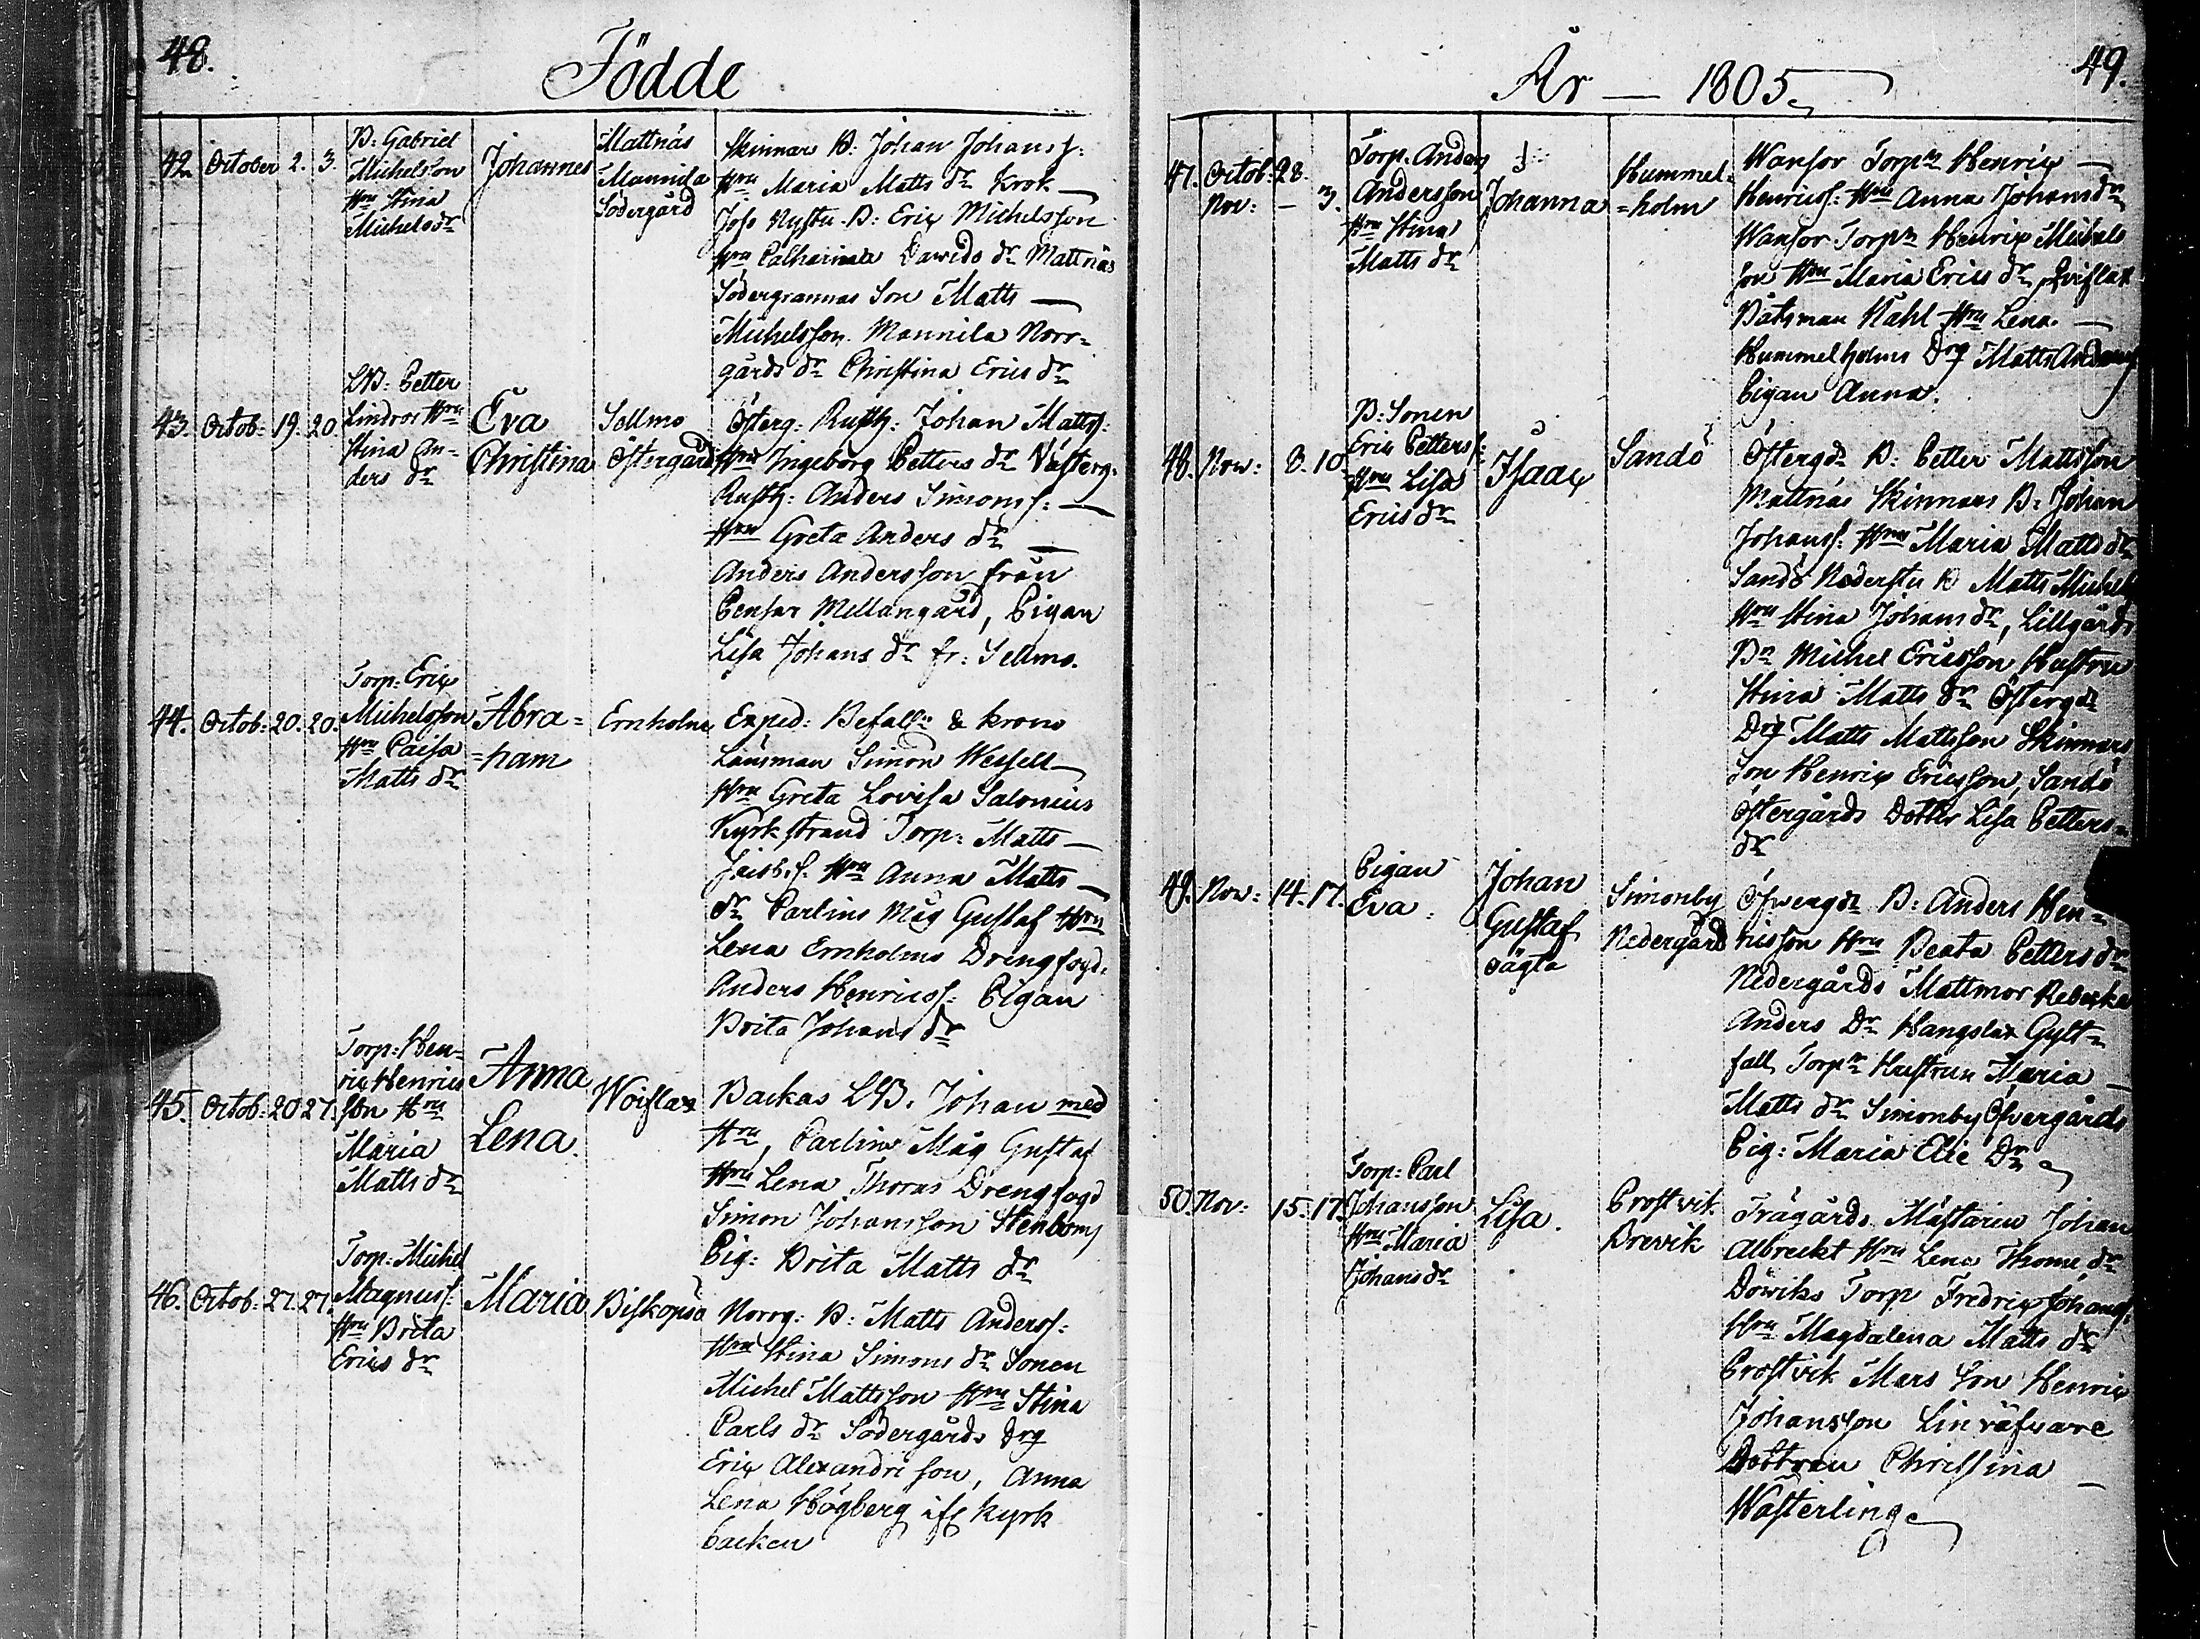 48.
Födde
42. October 2. 3.
B: Gabriel
Michelsson
Hru Stina
Michelsdr
Johannes
Mattnäs
Mannila
Södergård
Skinnars B: Johan Johanss:
Hru Maria Matts dr Krok
Jofs Nystu B: Eric Michelsson
Hru Catharina Davids dr Mattnäs
Södergrannas Son Matts
Michelsson. Mannila Norr=
gårds dr Christina Erics dr
43. Octob: 19. 20.
LB: Petter
Lindros Hru
Stina An-
ders dr
Eva
Christina
Sellmo
Östergård
Österg: Rusth: Johan Matts:
Hru Ingeborg Petters dr Västerg:
Rusth: Anders Simons:
Hru Greta Anders dr
Anders Andersson från
Pensar Mellangård, Pigan
Lisa Johans dr fr: Sellmo.
44. Octob: 20. 20.
Torp: Eric
Michelsson
Hru Caisa
Matts dr
Abra=
=ham
Ernholm
Exped: Befalln & krono
Länsman Simon Wessell
Hru Greta Lovisa Salonius
Kyrkstrand Torp: Matts
Jacobs: Hru Anna Matts
dr Carlins Måg Gustaf Hru
Lena Ernholms Drengfogd:
Anders Henricss: Pigan
Brita Johans dr
45. Octob: 20 27.
Torp: Hen=
ric Henrics
son Hru
Maria
Matts dr
Anna
Lena.
Backas LB: Johan med
Hru, Carlins Måg Gustaf
Hru Lena Thoras Drengfogd
Simon Johansson Stenboms
Pig: Brita Matts dr
46. Octob: 27. 27.
Torp: Michel
Magnuss:
Hru Brita
Erics dr
Maria
Biskopsö
Norrg: B: Matts Anderss:
Hru Stina Simons dr Sonen
Michel Mattsson Hru Stina
Carls dr Södergårds Drg
Eric Alexandri son, Anna
Lena Högberg ifr Kyrk
backen
År — 1805
49.
47. Octob: 28.
Nov: — 3.
Torp. Anders
Andersson
Hru Stina
Matts dr
Johanna
Hummel=
=holm
Wansor Torpn Henric
Henricss: Hru Anna Johans dr
Wansor Torpn Henric Michels
son Hru Maria Erics dr
Båtsman Kåhl Hru Lena.
Hummelholms Drg Matts Anderss
Pigan Anna.
48. Nov: 8. 10.
B: Sonen
Eric Petters:
Hru Lisa
Erics dr
Isaac
Sandö
Östergds B: Petter Mattsson
Mattnäs Skinnars B: Johan
Johanss: Hru Maria Matts dr
Sandö Nederstu B Matts Michels
Hru Stina Johans dr, Lillgårds
Bn Michel Ericsson Hustru
Stina Matts dr Östergds
Drg Matts Mattsson Skinnars
Son Henric Ericsson, Sandö
Östergårds Dotter Lisa Petters=
dr
49. Nov: 14. 17.
Pigan
Eva.
Johan
Gustaf
oägta
Simonby
Nedergård
Öfvergds B: Anders Hen=
ricsson Hru Beata Petters dr
Nedergårds Mattmor Rebecka
Anders Dr Hangslax Gylt=
fall Torpn Hustrun Maria
Matts dr Simonby Öfvergårds
Pig: Maria Elie Dr
50. Nov: 15. 17.
Torp: Carl
Johansson
Hru Maria
Johans dr
Lisa.
Prostvik
Brevik
Trägårds Mästaren Johan
Albrecht Hru Lena Thome dr
Döwiks Torp Fredric Johanss:
Hru Magdalena Matts dr
Prostvik Mars Son Henric
Johansson Linväfvare
Dottren Christina
Wästerling